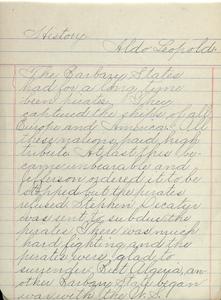 History
Aldo Leopold
The Barbary States
had for a long time
been pirates. They
captured the ships of all
Europe and America. All
these nations paid high
tribute. At last this be-
came unbearable and
Jefferson ordered it to be
stopped but the pirates
refused. Stephen Decatur
was sent to subdue the
pirates. There was much
hard fighting and the
pirates were glad to
surrender. But Algeria, an-
other Barbary State began
war with the U.S.